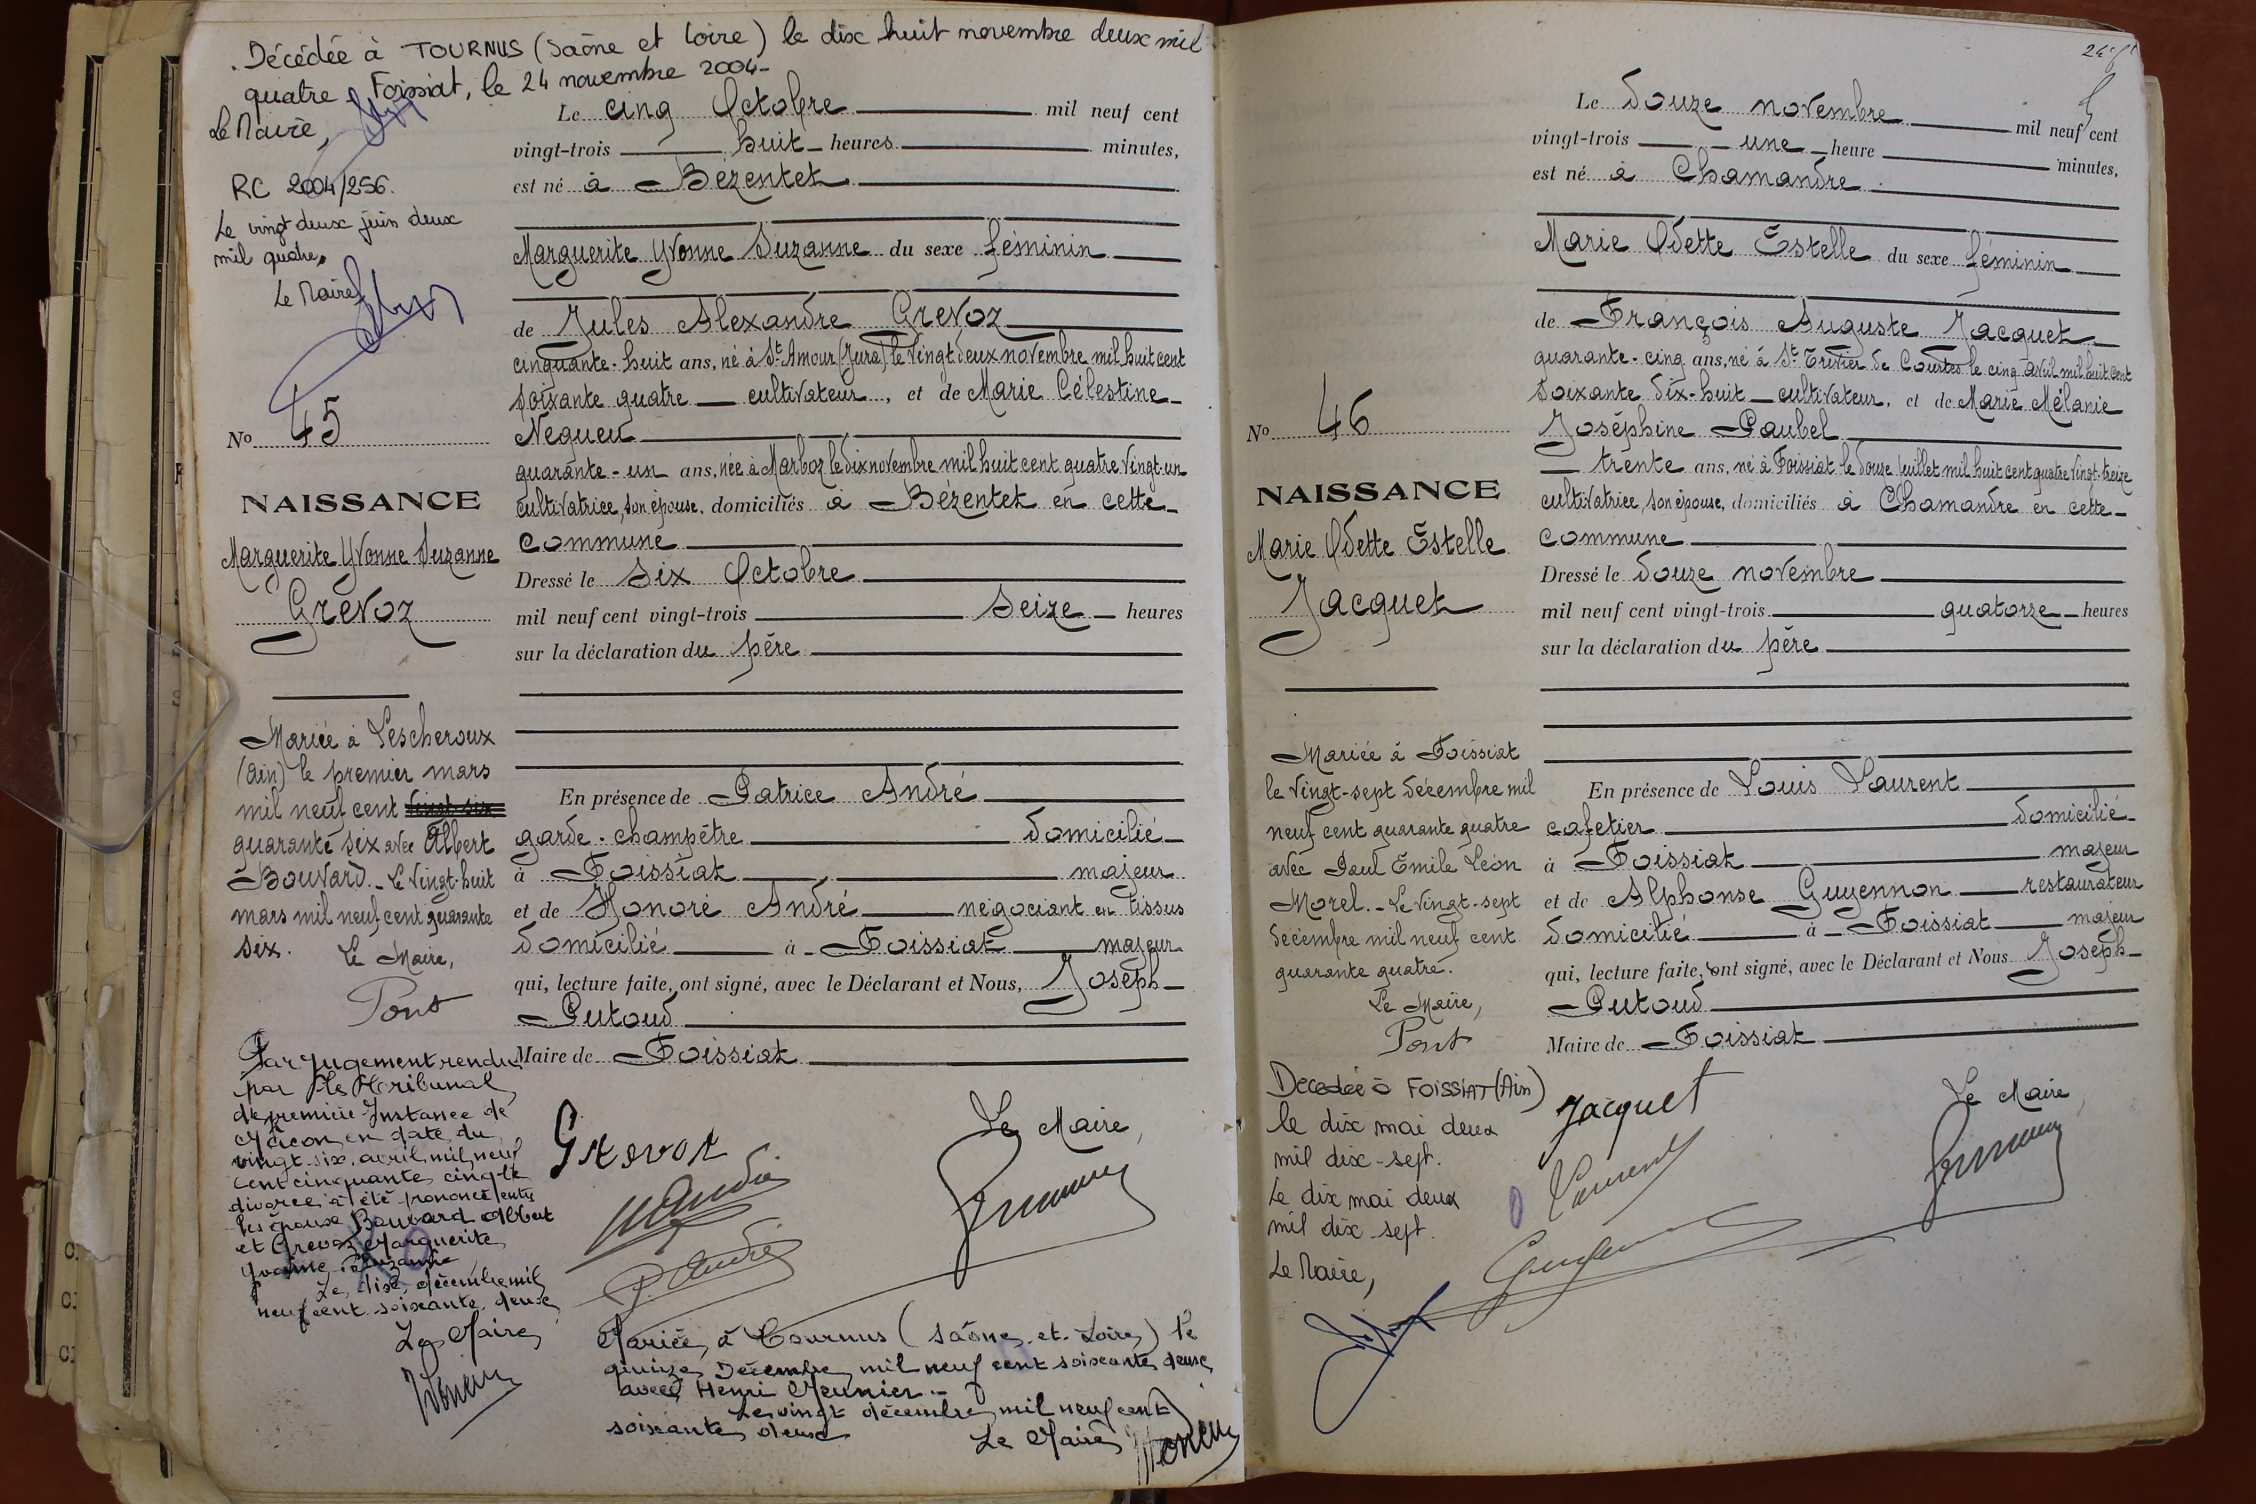 . Décédée à TOURNUS (Saône et Loire) le dix huit novembre deux mil
quatre Foissiat, le 24 novembre 2004-
Le Maire,
RC 2004/256.
Le vingt deux juin deux
mil quatre,
Le Maire
No 45
NAISSANCE
Marguerite Yvonne Suzanne
Grevoz
Mariée à Lescheroux
(Ain) le premier mars
mil neuf cent vingt-six
quarante six avec Albert
Bouvard. - Le vingt-huit
mars mil neuf cent quarante
six.
Le Maire,
Pont
Par jugement rendu
par le tribunal
de première Instance de
Mâcon en date du
vingt-six, avril mil neuf
cent cinquante cinq le
divorce a été prononcé entre
les époux Bouvard Albert
et Grevoz Marguerite
Yvonne Suzanne
Le dix, décembre mil
neuf cent soixante deux
Le Maire
Le cinq Octobre mil neuf cent
vingt-trois huit heures minutes,
est né à Bézentet
Marguerite Yvonne Suzanne du sexe féminin
de Jules Alexandre Grevoz
cinquante-huit ans, né à St Amour (Jura) le vingt deux novembre mil huit cent
soixante quatre cultivateur, et de Marie Célestine
Neguen
quarante-un ans, née à Marboz le dix novembre mil huit cent quatre vingt-un
cultivatrice, son épouse, domiciliés à Bézentet en cette
commune
Dressé le six Octobre
mil neuf cent vingt-trois seize heures
sur la déclaration du père
En présence de Patrice André
garde-champêtre domicilié
à Foissiat majeur
et de Honoré André négociant en tissus
domicilié à Foissiat majeur
qui, lecture faite, ont signé, avec le Déclarant et Nous, Joseph
Putoud
Maire de Foissiat
Le Maire,
Grevoz
P. André
Mariée à Tournus (Saône-et-Loire) le
quinze Décembre mil neuf cent soixante deux
avec Henri Meunier.-
Le vingt décembre mil neuf cent
soixante deux
Le Maire
No 46
NAISSANCE
Marie Odette Estelle
Jacquet
Mariée à Foissiat
le vingt-sept décembre mil
neuf cent quarante quatre
avec Paul Emile Léon
Morel. - Le vingt-sept
décembre mil neuf cent
quarante quatre.
Le Maire,
Pont
Decedée à FOISSIAT (Ain)
le dix mai deux
mil dix-sept.
Le dix mai deux
mil dix-sept.
Le Maire,
Le douze novembre mil neuf cent
vingt-trois une heure minutes,
est né à Chamandre
Marie Odette Estelle du sexe féminin
de François Auguste Jacquet
quarante-cinq ans, né à St Trivier de Courtes le cinq avril mil huit cent
soixante dix-huit cultivateur, et de Marie Mélanie
Joséphine Paubel
trente ans, né à Foissiat le douze juillet mil huit cent quatre vingt-treize
cultivatrice, son épouse, domiciliés à Chamandre en cette
commune
Dressé le douze novembre
mil neuf cent vingt-trois quatorze heures
sur la déclaration du père
En présence de Louis Laurent
cafetier domicilié
à Foissiat majeur
et de Alphonse Guyennon restaurateur
domicilié à Foissiat majeur
qui, lecture faite, ont signé, avec le Déclarant et Nous Joseph
Putoud
Maire de Foissiat
Jacquet
Le Maire,
Laurent